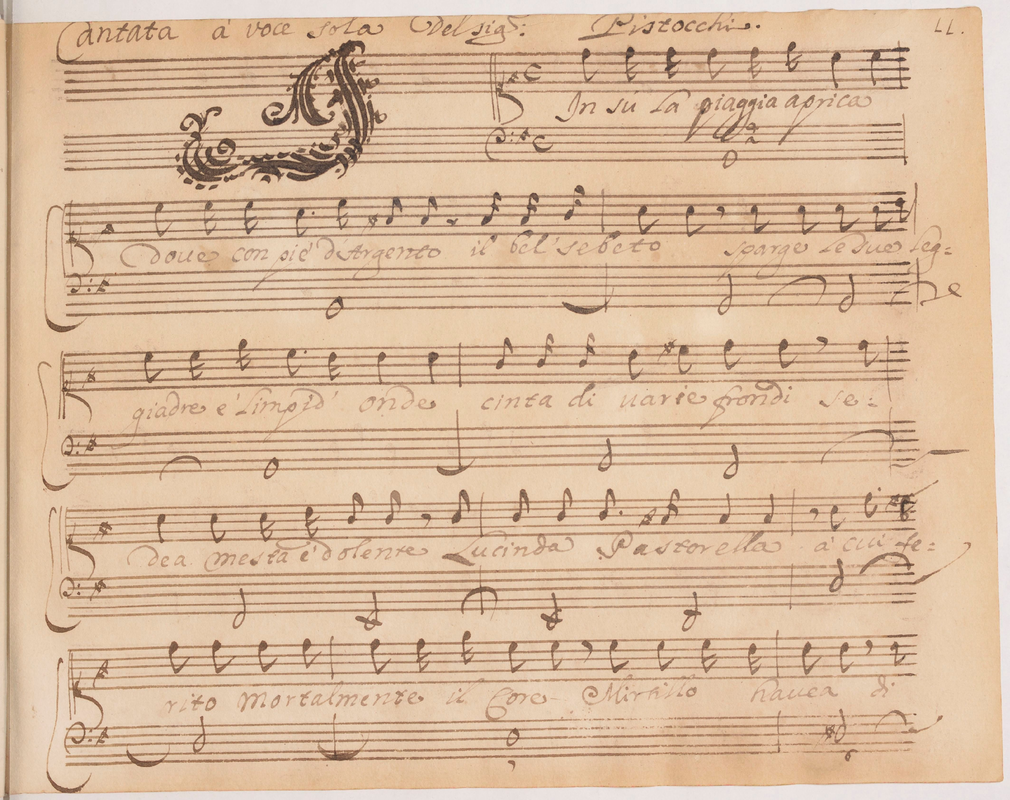 Cantata à voce sola Del sig: Pistocchi. LL.
In sù la piaggia aprica
dove con piè d'Argento il bel' sebeto sparge le due leg=
giadre e' limpid' onde cinta di varie frondi se=
dea mesta e' dolente Lucinda Pastorella à cui fe=
rito mortalmente il Core Mirtillo havea di